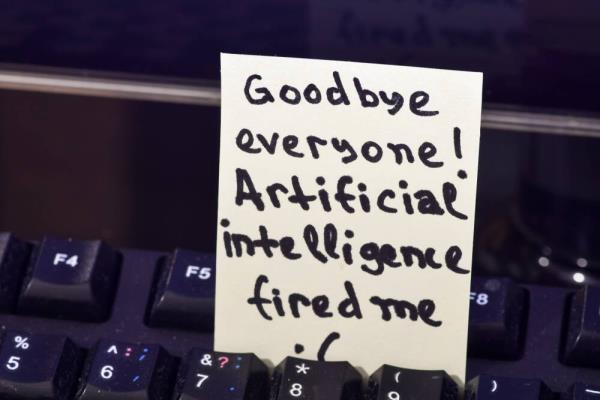 Goodbye
everyone!
Artificial
intelligence
fired me
:(
F4
F5
F8
%
5
^ : ,
6
& ? :
7
*
8
(
9
)